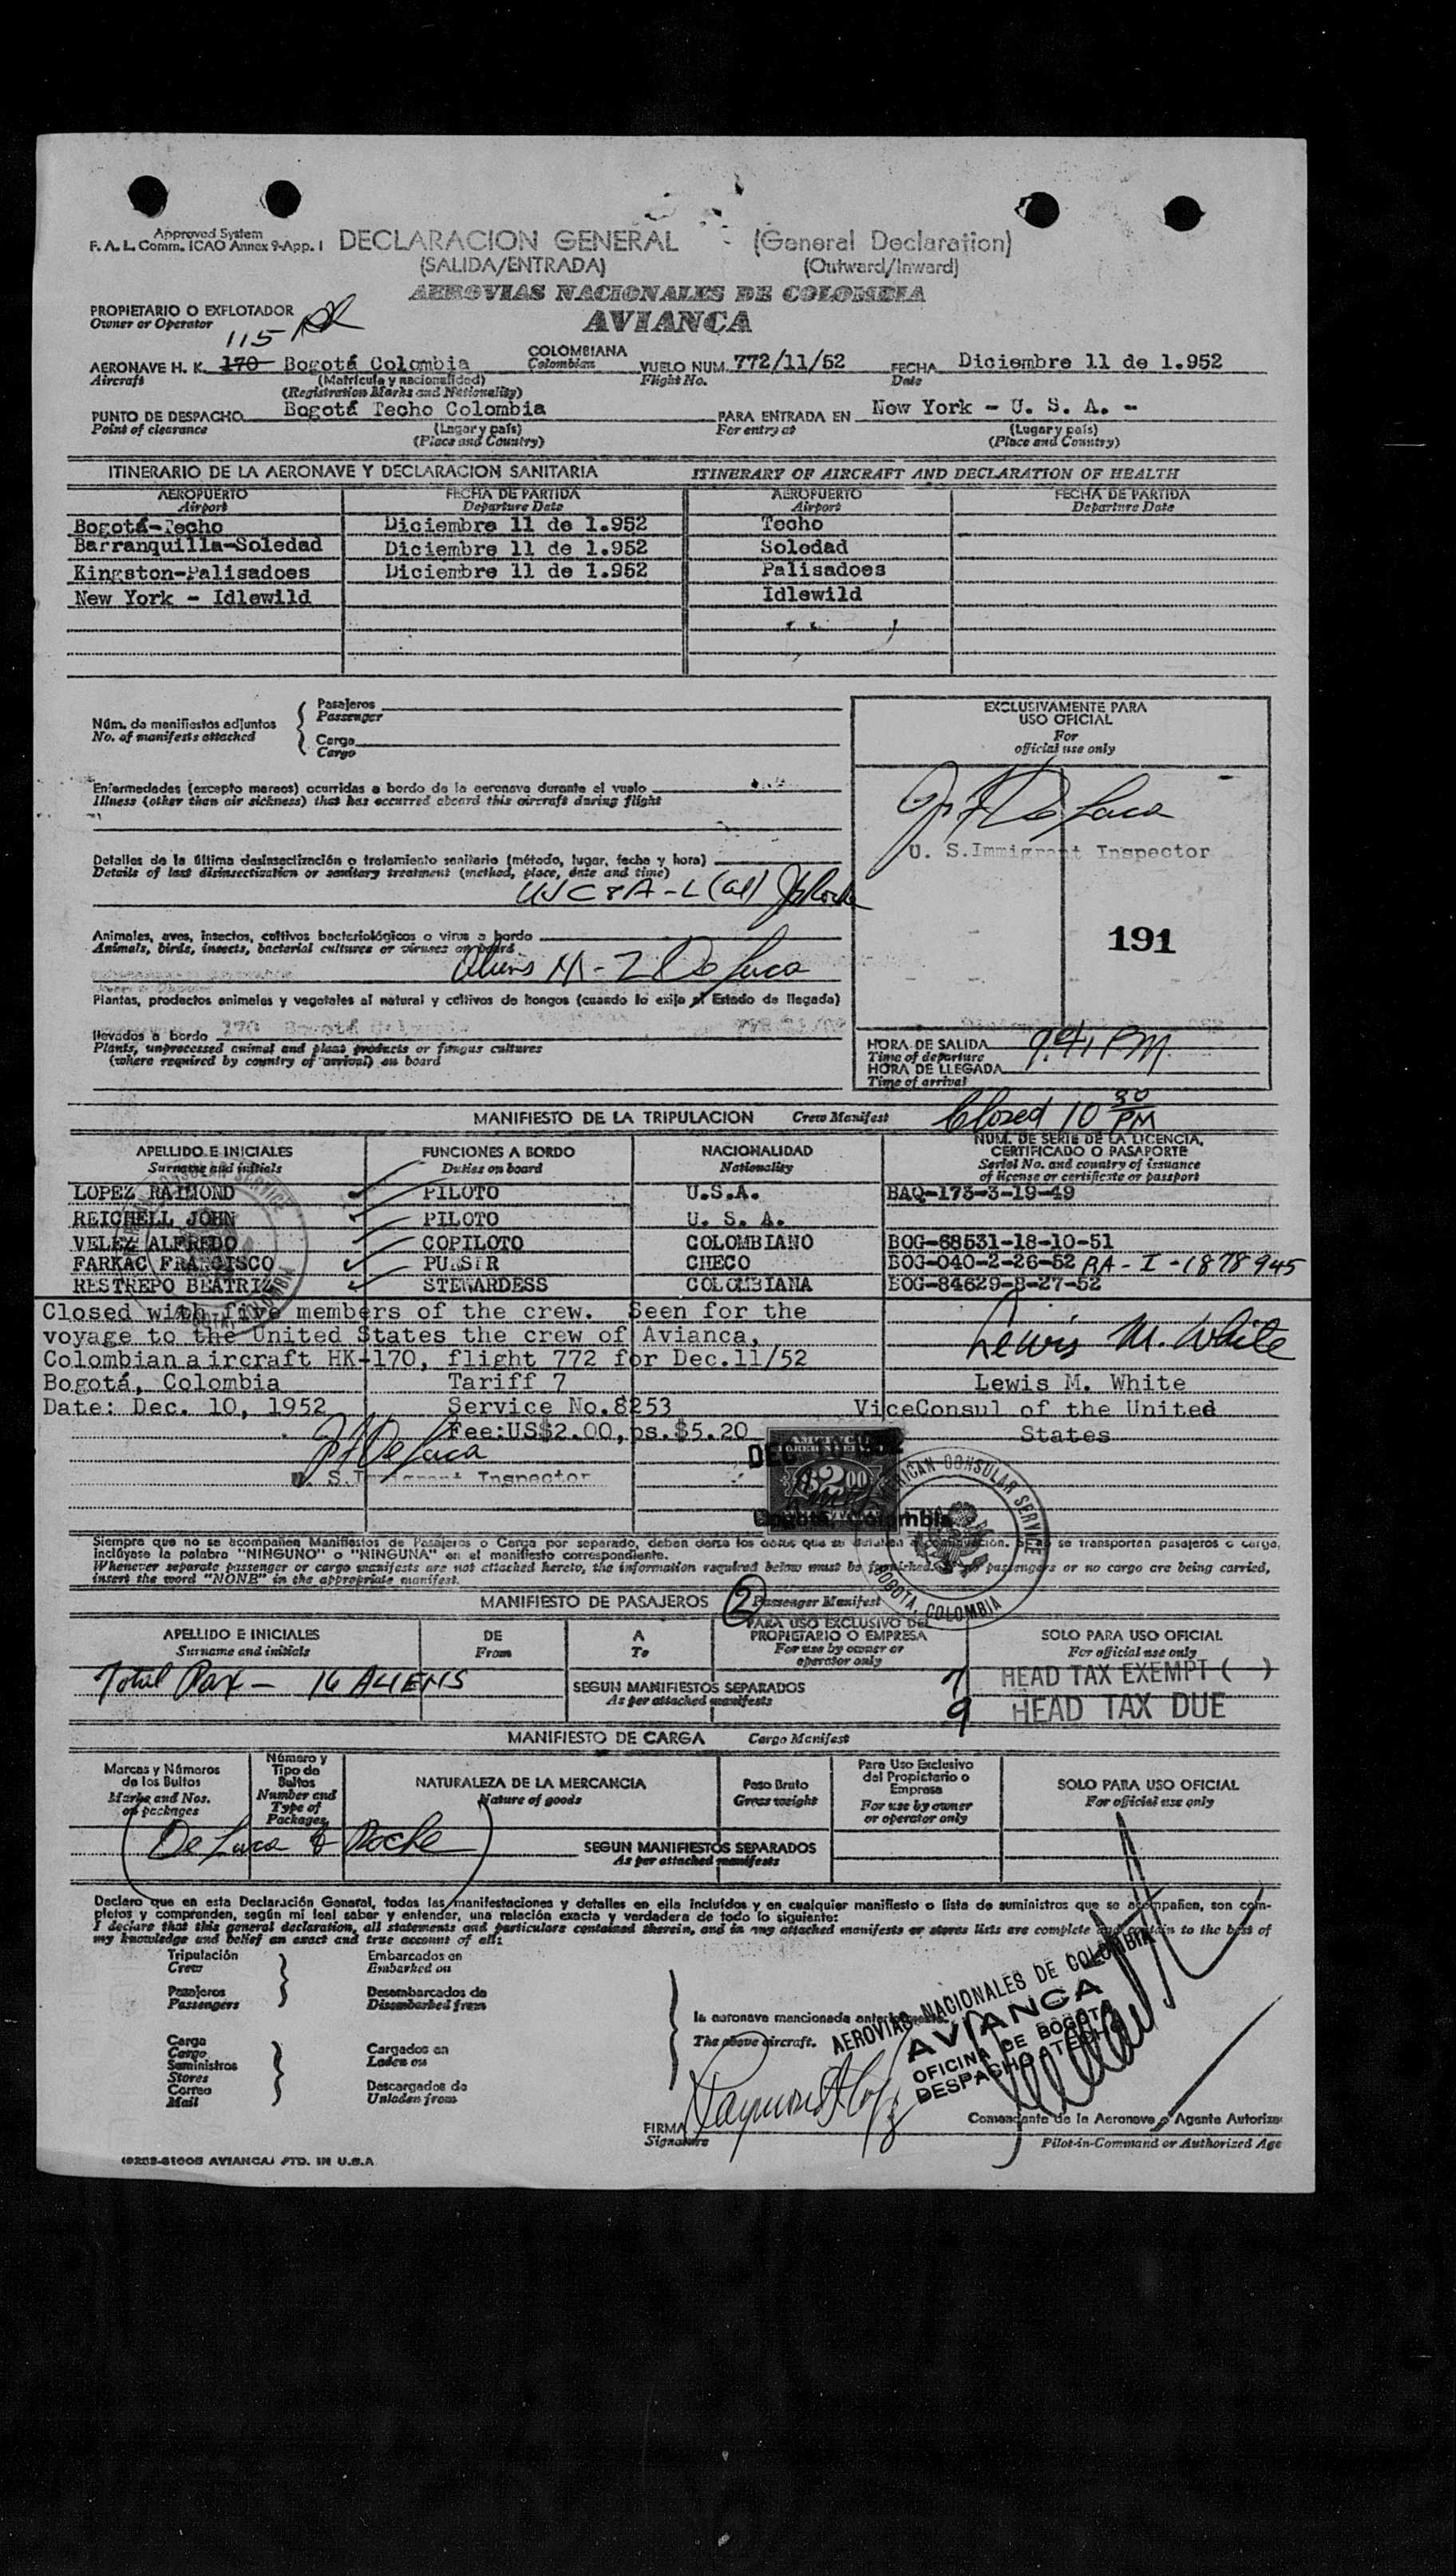 Approved System
F. A. L. Comm. ICAO Annex 9-App. I
DECLARACION GENERAL (General Declaration)
(SALIDA/ENTRADA) (Outward/Inward)
AEROVIAS NACIONALES DE COLOMBIA
AVIANCA
PROPIETARIO O EXPLOTADOR
Owner or Operator
115
AERONAVE H. K. 170 Bogotá Colombia COLOMBIANA VUELO NUM. 772/11/52 FECHA Diciembre 11 de 1.952
Aircraft (Matrícula y nacionalidad) Colombian Flight No. Date
(Registration Marks and Nationality)
PUNTO DE DESPACHO Bogotá Techo Colombia PARA ENTRADA EN New York - U. S. A. -
Point of clearance (Lugar y país) For entry at (Lugar y país)
(Place and Country) (Place and Country)
ITINERARIO DE LA AERONAVE Y DECLARACION SANITARIA ITINERARY OF AIRCRAFT AND DECLARATION OF HEALTH
AEROPUERTO FECHA DE PARTIDA AEROPUERTO FECHA DE PARTIDA
Airport Departure Date Airport Departure Date
Bogotá-Techo Diciembre 11 de 1.952 Techo
Barranquilla-Soledad Diciembre 11 de 1.952 Soledad
Kingston-Palisadoes Diciembre 11 de 1.952 Palisadoes
New York - Idlewild Idlewild
Núm. de manifiestos adjuntos
No. of manifests attached
Pasajeros
Passenger
Carga
Cargo
EXCLUSIVAMENTE PARA
USO OFICIAL
For
official use only
Enfermedades (excepto mareos) ocurridas a bordo de la aeronave durante el vuelo
Illness (other than air sickness) that has occurred aboard this aircraft during flight
De Luca
U. S. Immigrant Inspector
Detalles de la última desinsectización o tratamiento sanitario (método, lugar, fecha y hora)
Details of last disinsectization or sanitary treatment (method, place, date and time)
Animales, aves, insectos, cultivos bacteriológicos o virus a bordo
Animals, birds, insects, bacterial cultures or viruses on board
191
Aliens M-Z De Luca
Plantas, productos animales y vegetales al natural y cultivos de hongos (cuando lo exija el Estado de llegada)
llevados a bordo
Plants, unprocessed animal and plant products or fungus cultures
(where required by country of arrival) on board
HORA DE SALIDA
Time of departure
9:41 PM
HORA DE LLEGADA
Time of arrival
Closed 10 30 PM
MANIFIESTO DE LA TRIPULACION Crew Manifest
APELLIDO E INICIALES FUNCIONES A BORDO NACIONALIDAD NUM. DE SERIE DE LA LICENCIA, CERTIFICADO O PASAPORTE
Surname and initials Duties on board Nationality Serial No. and country of issuance of license or certificate or passport
LOPEZ RAIMOND PILOTO U.S.A. BAQ-173-3-19-49
REICHELL JOHN PILOTO U. S. A.
VELEZ ALFREDO COPILOTO COLOMBIANO BOG-68531-18-10-51
FARKAC FRANCISCO PURSER CHECO BOG-040-2-26-52 RA-I-1878945
RESTREPO BEATRIZ STEWARDESS COLOMBIANA BOG-84629-8-27-52
Closed with five members of the crew. Seen for the
voyage to the United States the crew of Avianca,
Colombian aircraft HK-170, flight 772 for Dec.11/52
Lewis M. White
Bogotá, Colombia Tariff 7 Lewis M. White
Date: Dec. 10, 1952 Service No.8253 ViceConsul of the United
Fee:US$2.00,ps.$5.20 States
De Luca
U. S. Immigrant Inspector
DEC
$2 00
Bogotá, Colombia
AMERICAN CONSULAR SERVICE
BOGOTA, COLOMBIA
Siempre que no se acompañen Manifiestos de Pasajeros o Carga por separado, deben darse los datos que se detallan a continuación. Si no se transportan pasajeros o carga,
inclúyase la palabra "NINGUNO" o "NINGUNA" en el manifiesto correspondiente.
Whenever separate passenger or cargo manifests are not attached hereto, the information required below must be furnished. If no passengers or no cargo are being carried,
insert the word "NONE" in the appropriate manifest.
MANIFIESTO DE PASAJEROS 2 Passenger Manifest
APELLIDO E INICIALES DE A PARA USO EXCLUSIVO DEL PROPIETARIO O EMPRESA SOLO PARA USO OFICIAL
Surname and initials From To For use by owner or operator only For official use only
Total Pax - 16 ALIENS SEGUN MANIFIESTOS SEPARADOS 7 HEAD TAX EXEMPT ( )
As per attached manifests 9 HEAD TAX DUE
MANIFIESTO DE CARGA Cargo Manifest
Marcas y Números de los Bultos Número y Tipo de Bultos NATURALEZA DE LA MERCANCIA Peso Bruto Para Uso Exclusivo del Propietario o Empresa SOLO PARA USO OFICIAL
Marks and Nos. on packages Number and Type of Packages Nature of goods Gross weight For use by owner or operator only For official use only
De Luca & Roche SEGUN MANIFIESTOS SEPARADOS
As per attached manifests
Declaro que en esta Declaración General, todas las manifestaciones y detalles en ella incluídos y en cualquier manifiesto o lista de suministros que se acompañen, son com-
pletos y comprenden, según mi leal saber y entender, una relación exacta y verdadera de todo lo siguiente:
I declare that this general declaration, all statements and particulars contained therein, and in any attached manifests or stores lists are complete and contain to the best of
my knowledge and belief an exact and true account of all:
Tripulación Embarcados en
Crew Embarked on
Pasajeros Desembarcados de
Passengers Disembarked from
la aeronave mencionada anteriormente.
The above aircraft.
Carga Cargados en
Cargo Laden on
Suministros
Stores
Correo Descargados de
Mail Unladen from
AEROVIAS NACIONALES DE COLOMBIA
AVIANCA
OFICINA DE BOGOTA
DESPACHO TECHO
FIRMA
Signature
Comandante de la Aeronave o Agente Autoriza
Pilot-in-Command or Authorized Age
AVIANCA PTD. IN U.S.A.